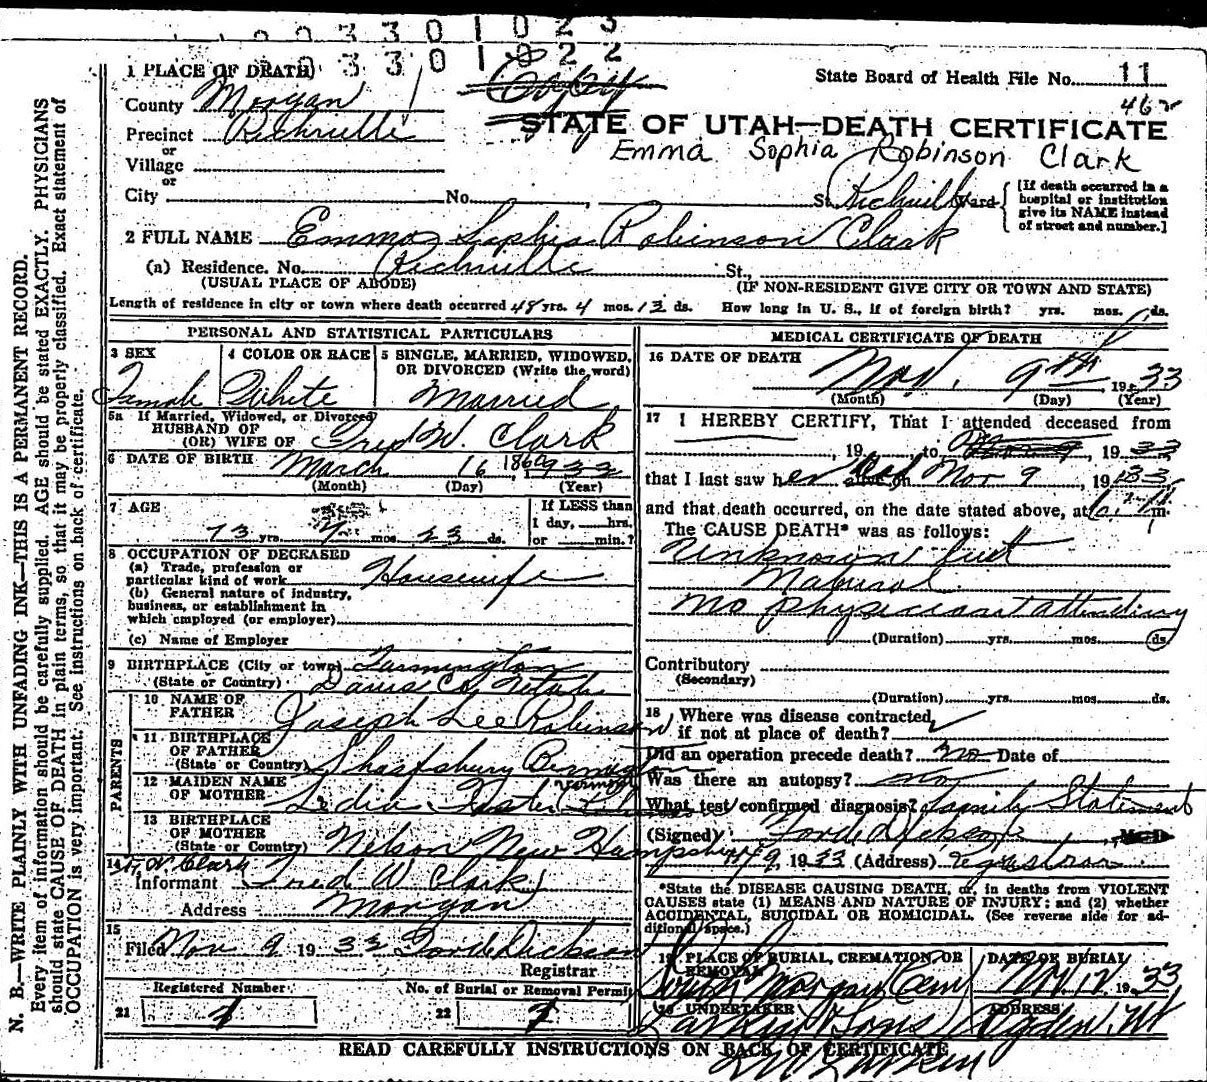 0 0 3 3 0 1 0 2 3
0 3 3 0 1 0 2 2
1 PLACE OF DEATH
County Morgan
Precinct Richville
or
Village
or
City No. St. Richville Ward
Copy
State Board of Health File No. 11
462
STATE OF UTAH—DEATH CERTIFICATE
Emma Sophia Robinson Clark
[If death occurred in a
hospital or institution
give its NAME instead
of street and number.]
2 FULL NAME Emma Sophia Robinson Clark
(a) Residence. No. Richville St.,
(USUAL PLACE OF ABODE) (IF NON-RESIDENT GIVE CITY OR TOWN AND STATE)
Length of residence in city or town where death occurred 48 yrs. 4 mos. 13 ds. How long in U. S., if of foreign birth? yrs. mos. ds.
PERSONAL AND STATISTICAL PARTICULARS
3 SEX
Female
4 COLOR OR RACE
White
5 SINGLE, MARRIED, WIDOWED,
OR DIVORCED (Write the word)
Married
5a If Married, Widowed, or Divorced
HUSBAND OF
(OR) WIFE OF Fred W. Clark
6 DATE OF BIRTH March 16 1860
(Month) (Day) (Year)
7 AGE
73 yrs. 7 mos. 23 ds.
If LESS than
1 day, hrs.
or min.?
8 OCCUPATION OF DECEASED
(a) Trade, profession or
particular kind of work Housewife
(b) General nature of industry,
business, or establishment in
which employed (or employer)
(c) Name of Employer
9 BIRTHPLACE (City or town) Farmington
(State or Country) Davis Co, Utah
PARENTS
10 NAME OF
FATHER Joseph Lee Robinson
11 BIRTHPLACE
OF FATHER
(State or Country) Shaftsbury Bennington
Vermont
12 MAIDEN NAME
OF MOTHER Foster
13 BIRTHPLACE
OF MOTHER
(State or Country) Nelson New Hampshire
14 F. W. Clark
Informant Fred W Clark
Address Morgan
15
Filed Nov 9 1933 Ford Dickson
Registrar
Registered Number
21
No. of Burial or Removal Permit
22
MEDICAL CERTIFICATE OF DEATH
16 DATE OF DEATH
Nov. 9th 1933
(Month) (Day) (Year)
17 I HEREBY CERTIFY, That I attended deceased from
, 19 , to , 1933
that I last saw her dead alive on Nov 9, 1933
and that death occurred, on the date stated above, at m.
The CAUSE DEATH* was as follows:
Unknown but
Natural
No physician attending
(Duration) yrs. mos. ds.
Contributory
(Secondary)
(Duration) yrs. mos. ds.
18 Where was disease contracted
if not at place of death?
Did an operation precede death? no Date of
Was there an autopsy? no
What test confirmed diagnosis? Family Statement
(Signed) Ford Dickson M. D.
11/9 1933 (Address) Registrar
*State the DISEASE CAUSING DEATH, or, in deaths from VIOLENT
CAUSES state (1) MEANS AND NATURE OF INJURY; and (2) whether
ACCIDENTAL, SUICIDAL OR HOMICIDAL. (See reverse side for ad-
ditional space.)
19 PLACE OF BURIAL, CREMATION, OR
REMOVAL
South Morgan Cem
DATE OF BURIAL
Nov. 12 1933
20 UNDERTAKER
Larkin & Sons
ADDRESS
Ogden, Ut
READ CAREFULLY INSTRUCTIONS ON BACK OF CERTIFICATE
N. B.—WRITE PLAINLY WITH UNFADING INK—THIS IS A PERMANENT RECORD.
Every item of information should be carefully supplied. AGE should be stated EXACTLY. PHYSICIANS
should state CAUSE OF DEATH in plain terms, so that it may be properly classified. Exact statement of
OCCUPATION is very important. See instructions on back of certificate.